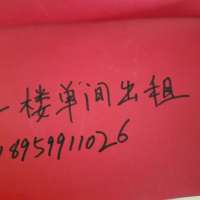 一楼单间出租
18959911026